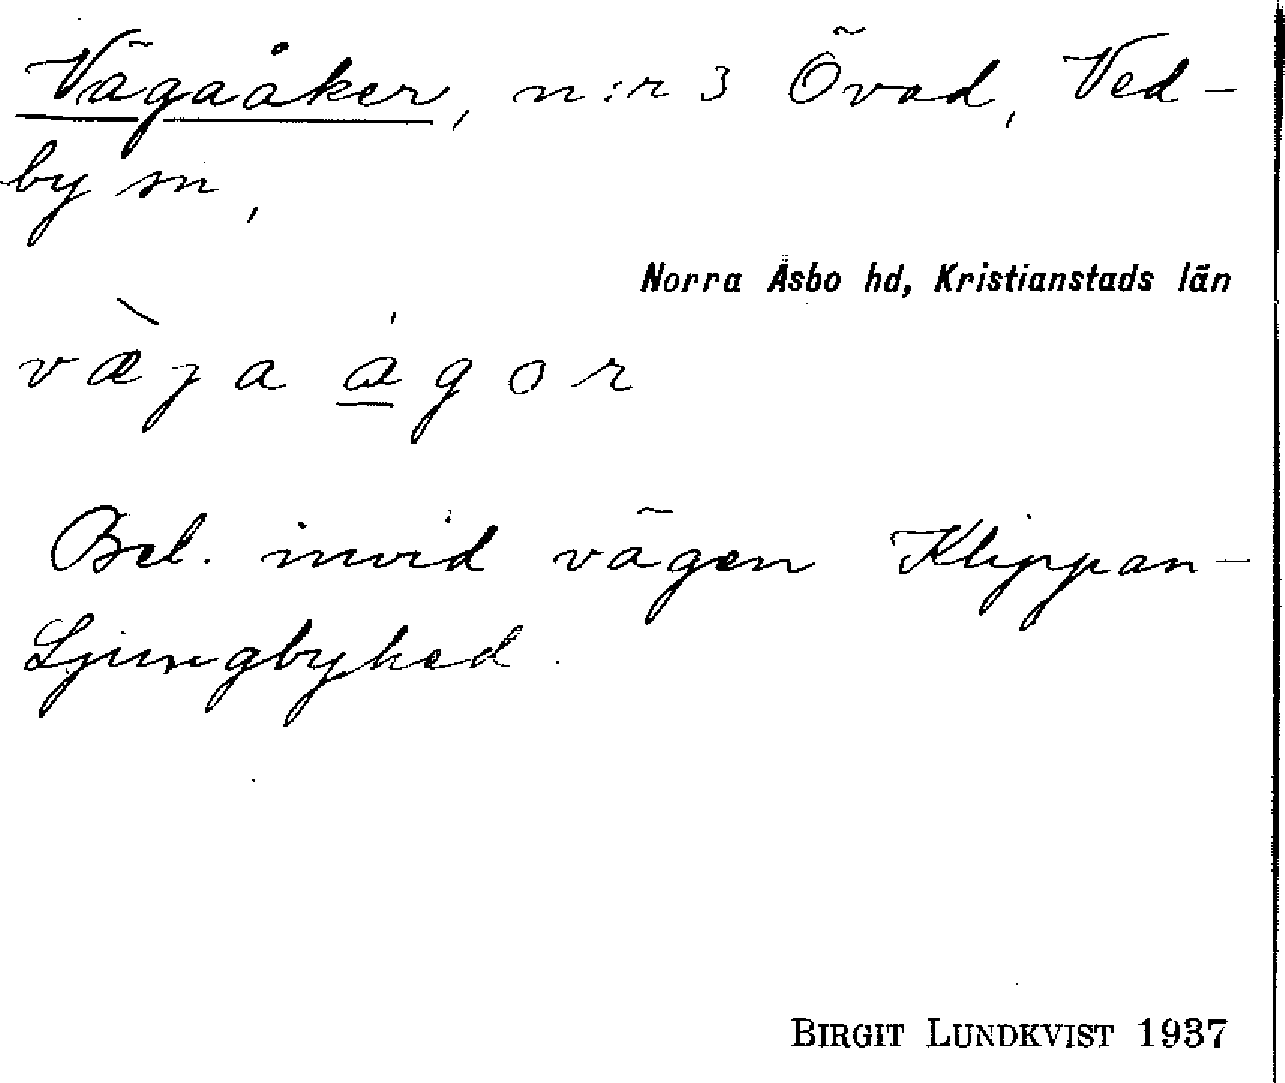 Vägaåker, n:r 3 Övad, Ved-
by sn,
Norra Åsbo hd, Kristianstads län
væ̀ja á̲gor
Bel. invid vägen Klippan-
Ljungbyhed.
BIRGIT LUNDKVIST 1937